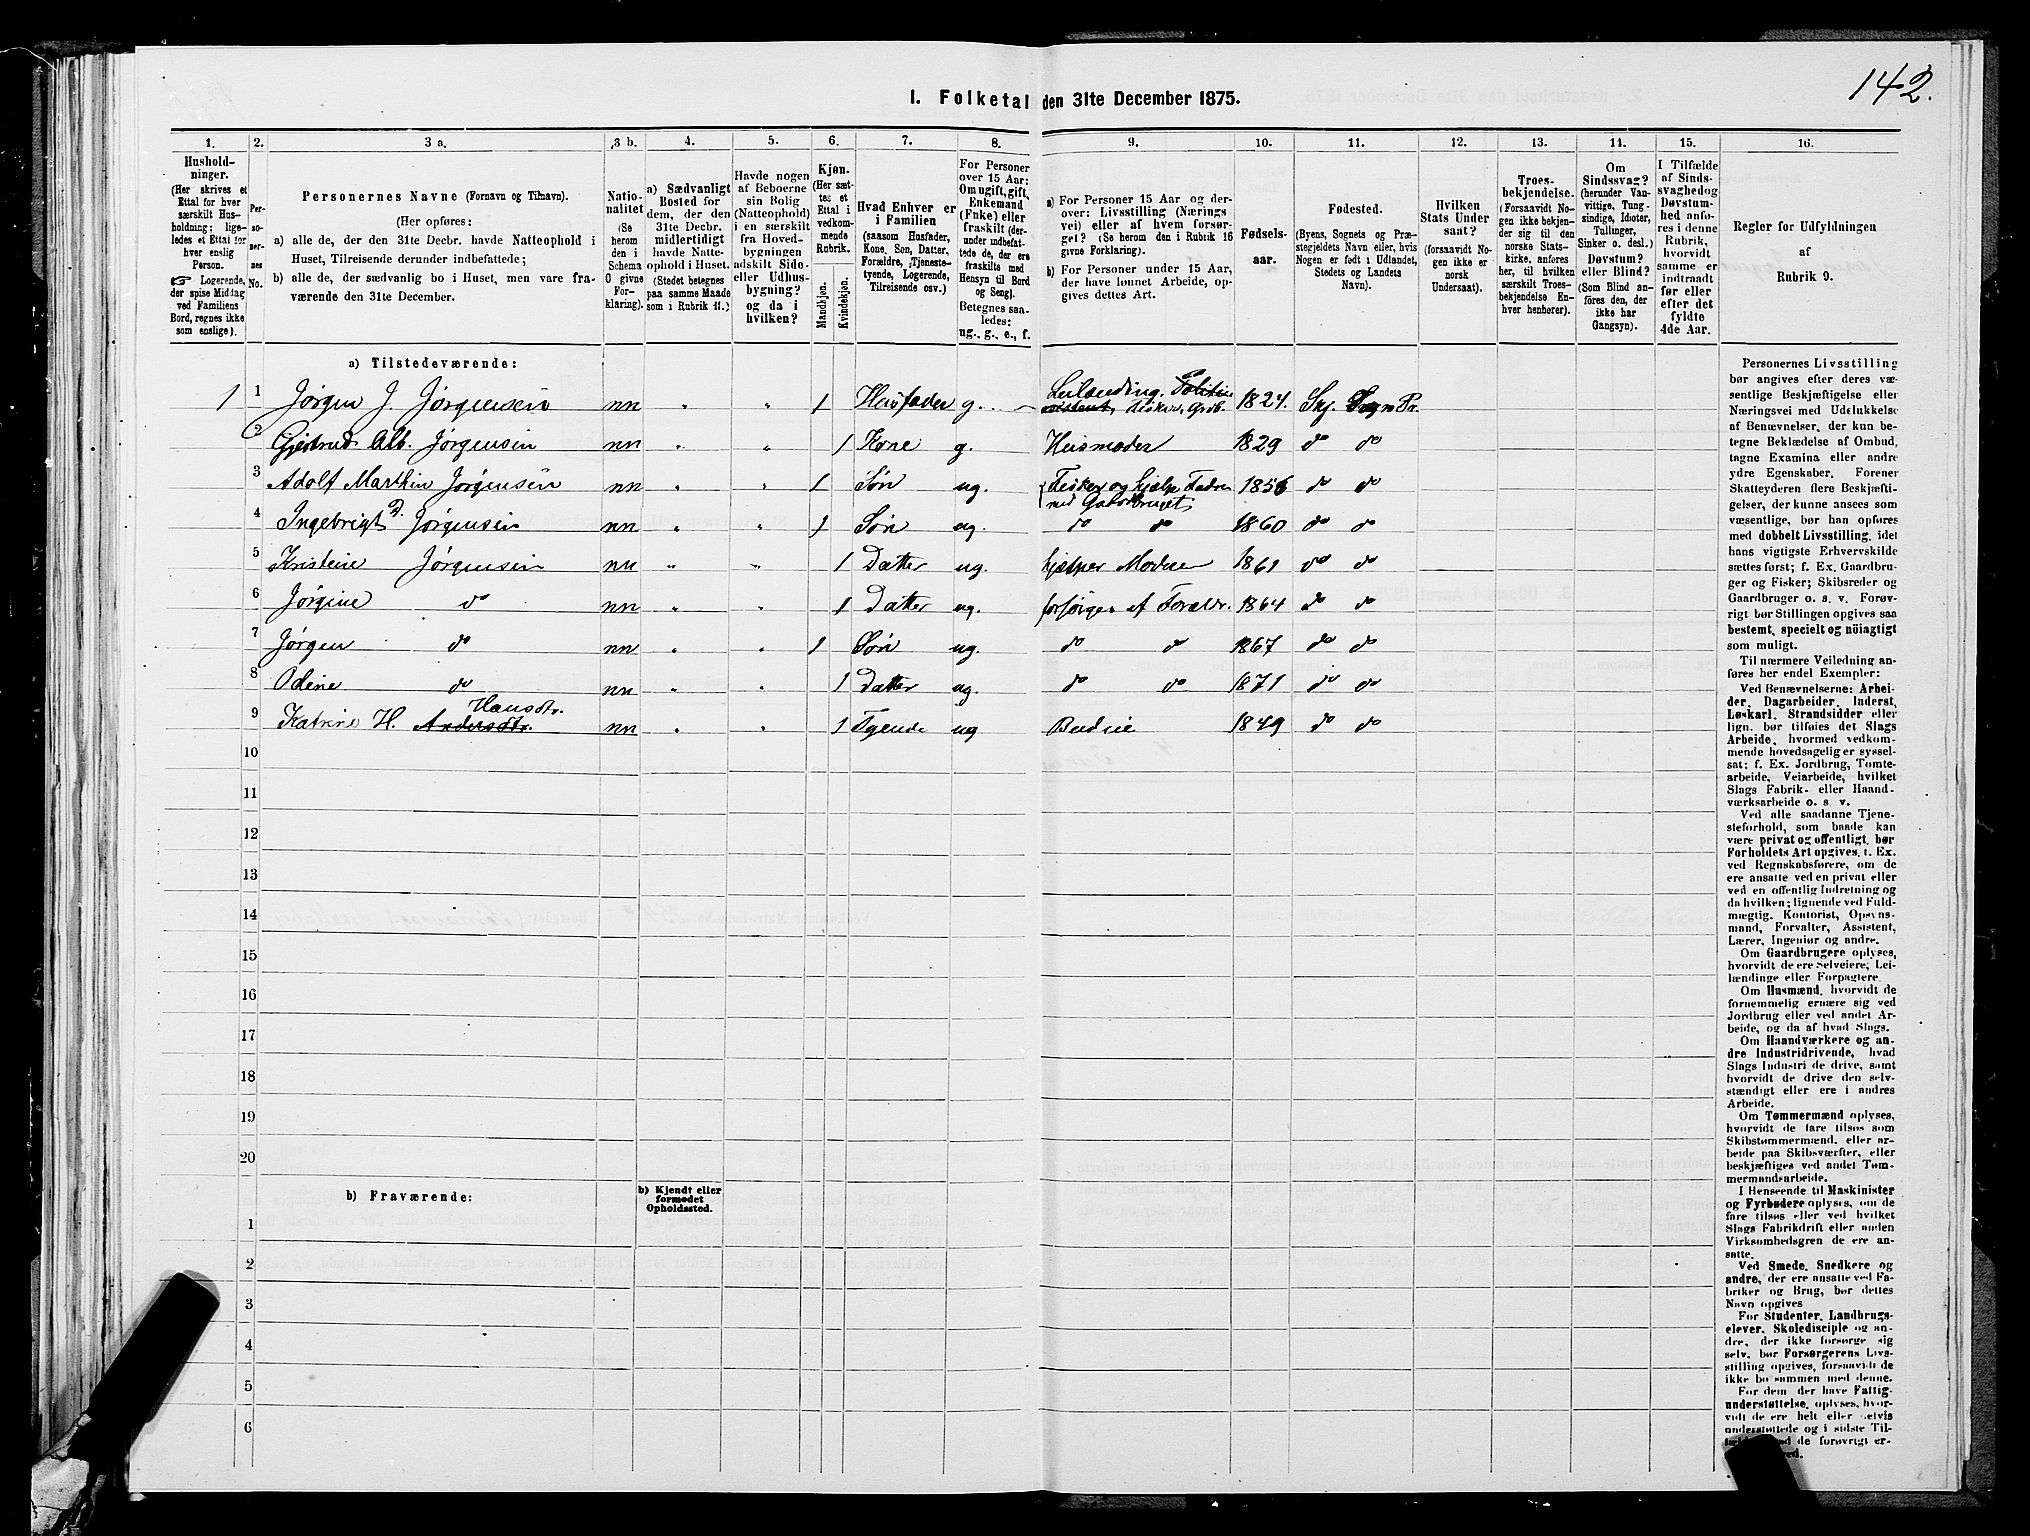 142.
I. Folketal den 31te December 1875.
1. 2. 3 a. 3 b. 4. 5. 6. 7. 8. 9. 10. 11. 12. 13. 14. 15. 16.
Hushold-
ninger.
(Her skrives et
Ettal for hver
særskilt Hus-
holdning; lige-
ledes et Ettal for
hver enslig
Person.
☞ Logerende,
der spise Middag
ved Familiens
Bord, regnes ikke
som enslige).
Per-
so-
ner-
nes
No.
Personernes Navne (Fornavn og Tilnavn).
(Her opføres:
a) alle de, der den 31te Decbr. havde Natteophold i
Huset, Tilreisende derunder indbefattede;
b) alle de, der sædvanlig bo i Huset, men vare fra-
værende den 31te December.
Natio-
nalitet
(Se
herom
den i
Schema
O givne
For-
klaring).
a) Sædvanligt
Bosted for
dem, der den
31te Decbr.
midlertidigt
havde Natte-
ophold i Huset.
(Stedet betegnes
paa samme Maade
som i Rubrik 11.)
Havde nogen
af Beboerne
sin Bolig
(Natteophold)
i en særskilt
fra Hoved-
bygningen
adskilt Side-
eller Udhus-
bygning?
og da i
hvilken?
Kjøn.
(Her sæt-
tes et
Ettal i
vedkom-
mende
Rubrik.
Mandkjøn.
Kvindekjøn.
Hvad Enhver er
i Familien
(saasom Husfader,
Kone, Søn, Datter,
Forældre, Tjeneste-
tyende, Logerende,
Tilreisende osv.)
For Personer
over 15 Aar:
Om ugift, gift,
Enkemand
(Enke) eller
fraskilt (der-
under indbefat-
tede de, der ere
fraskilte med
Hensyn til Bord
og Seng).
Betegnes saa-
ledes:
ug., g., e., f.
a) For Personer 15 Aar og der-
over: Livsstilling (Nærings
vei) eller af hvem forsør-
get? (Se herom den i Rubrik 16
givne Forklaring).
b) For Personer under 15 Aar,
der have lønnet Arbeide, op-
gives dettes Art.
Fødsels-
aar.
Fødested.
(Byens, Sognets og Præ-
stegjeldets Navn eller, hvis
Nogen er født i Udlandet,
Stedets og Landets
Navn).
Hvilken
Stats Under
saat?
(forsaavidt No-
gen ikke er
norsk
Undersaat).
Troes-
bekjendelse.
(Forsaavidt No-
gen ikke bekjen-
der sig til den
norske Stats-
kirke, anføres
her, til hvilken
særskilt Troes-
bekjendelse En-
hver henhører).
Om
Sindssvag?
(herunder Van-
vittige, Tung-
sindige, Idioter,
Tullinger,
Sinker o. desl.)
Døvstum?
eller Blind?
(Som Blind an-
føres den, der
ikke har
Gangsyn).
I Tilfælde
af Sinds-
svaghed og
Døvstum-
hed anfø-
res i denne
Rubrik,
hvorvidt
samme er
indtraadt
før eller
efter det
fyldte
4de Aar.
Regler for Udfyldningen
af
Rubrik 9.
a) Tilstedeværende:
1 1 Jørgen J. Jørgensen nn " " 1 Husfader g. Leilænding, Politie assistent, Fisker, Grdb. 1824. Skj. Sogn Pr.
2 Gjertrud Alb. Jørgensen nn " " 1 Kone g. Husmoder 1829 do do
3 Adolf Marthin Jørgensen nn " " 1 Søn ug. Fisker og hjælpe Fadren med Gaardbruget 1856 do do
4 Ingebrigt D. Jørgensen nn " " 1 Søn ug. do do 1860 do do
5 Kristine Jørgensen nn " " 1 Datter ug. hjælper Moderen 1861 do do
6 Jørgine do nn " " 1 Datter ug. forsørges af Forældr. 1864 do do
7 Jørgen do nn " " 1 Søn ug. do do 1867 do do
8 Odine do nn " " 1 Datter ug. do do 1871 do do
9 Katrine H. Andersdtr. Hansdtr. nn " " 1 Tyende ug Budeie 1849 do do
10
11
12
13
14
15
16
17
18
19
20
b) Fraværende:
b) Kjendt eller
formodet
Opholdssted.
1
2
3
4
5
6
Personernes Livsstilling
bør angives efter deres væ-
sentlige Beskjæftigelse eller
Næringsvei med Udelukkelse
af Benævnelser, der kun be-
tegne Beklædelse af Ombud,
tagne Examina eller andre
ydre Egenskaber. Forener
Skatteyderen flere Beskjæfti-
gelser, der kunne ansees som
væsentlige, bør han opføres
med dobbelt Livsstilling, idet
hans vigtigste Erhvervskilde
sættes først; f. Ex. Gaardbru-
ger og Fisker; Skibsreder og
Gaardbruger o. s. v. Forøv-
rigt bør Stillingen opgives saa
bestemt, specielt og nöiagtigt
som muligt.
Til nærmere Veiledning an-
føres her endel Exempler:
Ved Benævnelserne: Arbei-
der, Dagarbeider, Inderst,
Løskarl, Strandsidder eller
lign. bør tilføies det Slags
Arbeide, hvormed vedkom-
mende hovedsagelig er syssel-
sat; f. Ex. Jordbrug, Tomte-
arbeide, Veiarbeide, hvilket
Slags Fabrik- eller Haand-
værksarbeide o. s. v.
Ved alle saadanne Tjene-
steforhold, som baade kan
være privat og offentligt, bør
Forholdets Art opgives, t. Ex.
ved Regnskabsførere, om de
ere ansatte ved en privat eller
ved en offentlig Indretning og
da hvilken; lignende ved Fuld-
mægtig, Kontorist, Opsyns-
mand, Forvalter, Assistent,
Lærer, Ingeniør og andre.
Om Gaardbrugere oplyses,
hvorvidt de ere Selveiere, Lei-
lændinge eller Forpagtere.
Om Husmænd, hvorvidt de
fornemmelig ernære sig ved
Jordbrug eller ved andet Ar-
beide, og da af hvad Slags.
Om Haandværkere og an-
dre Industridrivende, hvad
Slags Industri de drive, samt
hvorvidt de drive den selv-
stændigt eller ere i andres
Arbeide.
Om Tømmermænd oplyses,
hvorvidt de fare tilsøs som
Skibstømmermænd, eller ar-
beide paa Skibsværfter, eller
beskjæftiges ved andet Tøm-
mermandsarbeide.
I Henseende til Maskinister
og Fyrbødere oplyses, om de
fare tilsøs eller ved hvilket
Slags Fabrikdrift eller anden
Virksomhedsgren de ere an-
satte.
Ved Smede, Snedkere og
andre, der ere ansatte ved Fa-
briker og Brug, bør dettes
Navn opgives
For Studenter, Landbrugs-
elever, Skoledisciple og an-
dre, der ikke forsørge sig
selv, bør Forsørgerens Livs-
stilling opgives, forsaavidt de
ikke bo sammen med denne.
For dem, der have Fattig-
understøttelse, oplyses, hvor-
vidt de ere helt eller delvis
understøttede og i sidste Til-
de forøvrigt er-